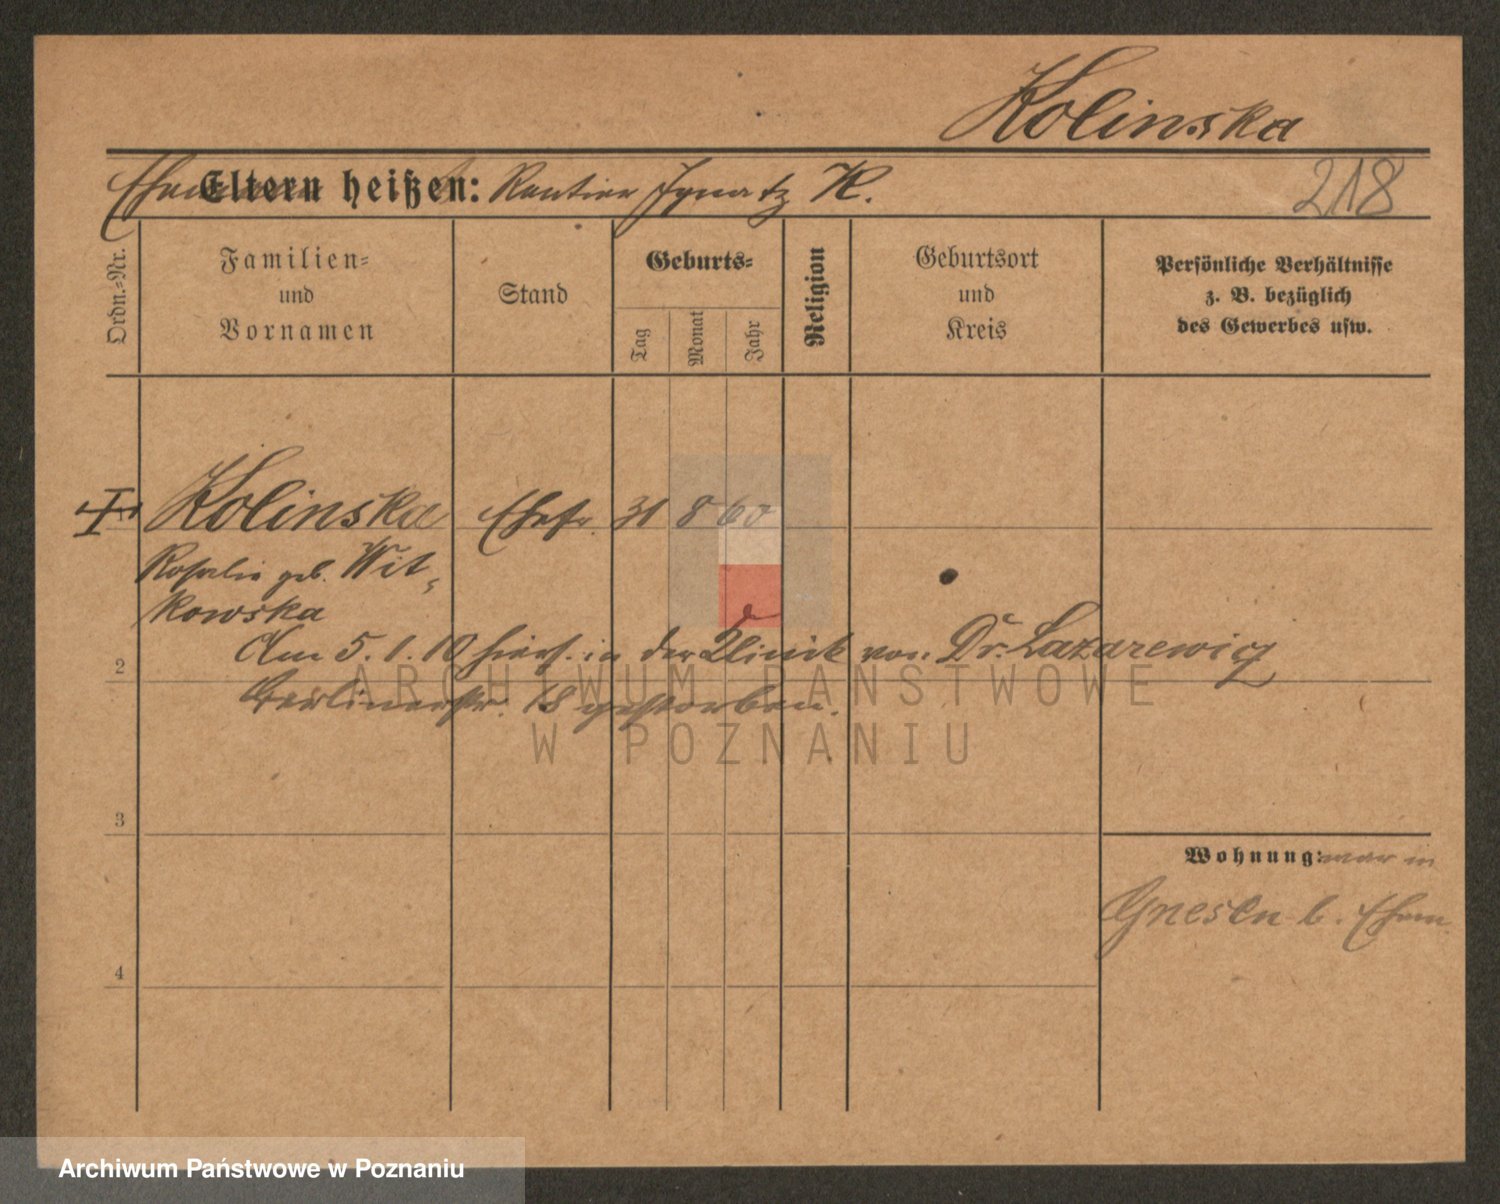 Kolinska
Ehemann Eltern heißen: Rentier Ignatz K. 218
Ordn.-Nr.
Familien-
und
Vornamen
Stand
Geburts-
Tag
Monat
Jahr
Religion
Geburtsort
und
Kreis
Persönliche Verhältnisse
z. B. bezüglich
des Gewerbes usw.
1 Kolinska Ehefr. 31 8 60
Rosalie geb. Wit-
kowska
Am 5.1.10 hiers. in der Klinik von Dr. Lazarewicz
2
Berlinerstr. 18 gestorben.
ARCHIWUM PAŃSTWOWE
W POZNANIU
3
Wohnung: war in
Gnesen b. Ehem.
4
Archiwum Państwowe w Poznaniu